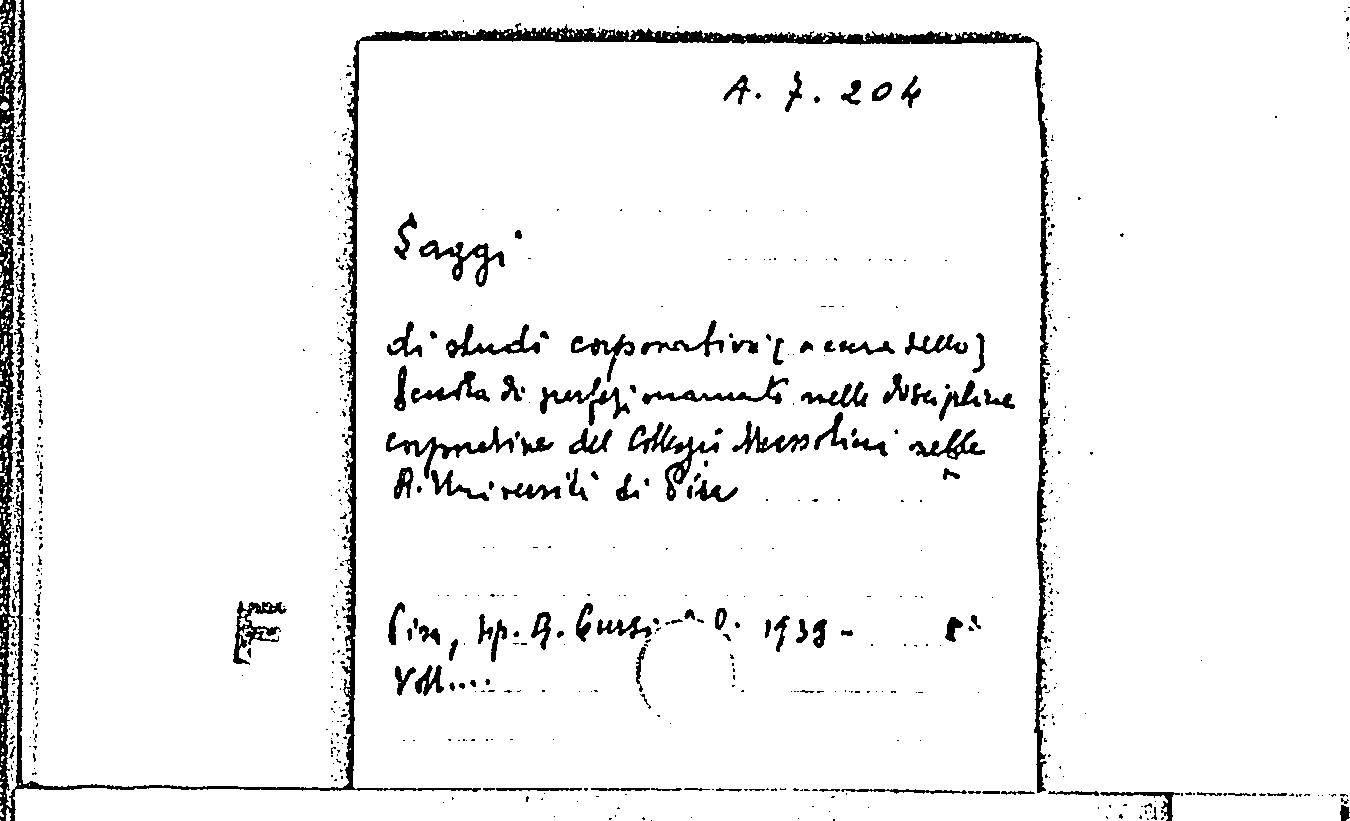 A. 7. 204
Saggi
di studi corporativi [a cura della]
Scuola di perfezionamento nelle discipline
corporative del Collegio Mussolini nella
R. Università di Pisa
Pisa, tip. A. Cursi 1939 - 8°
Voll....